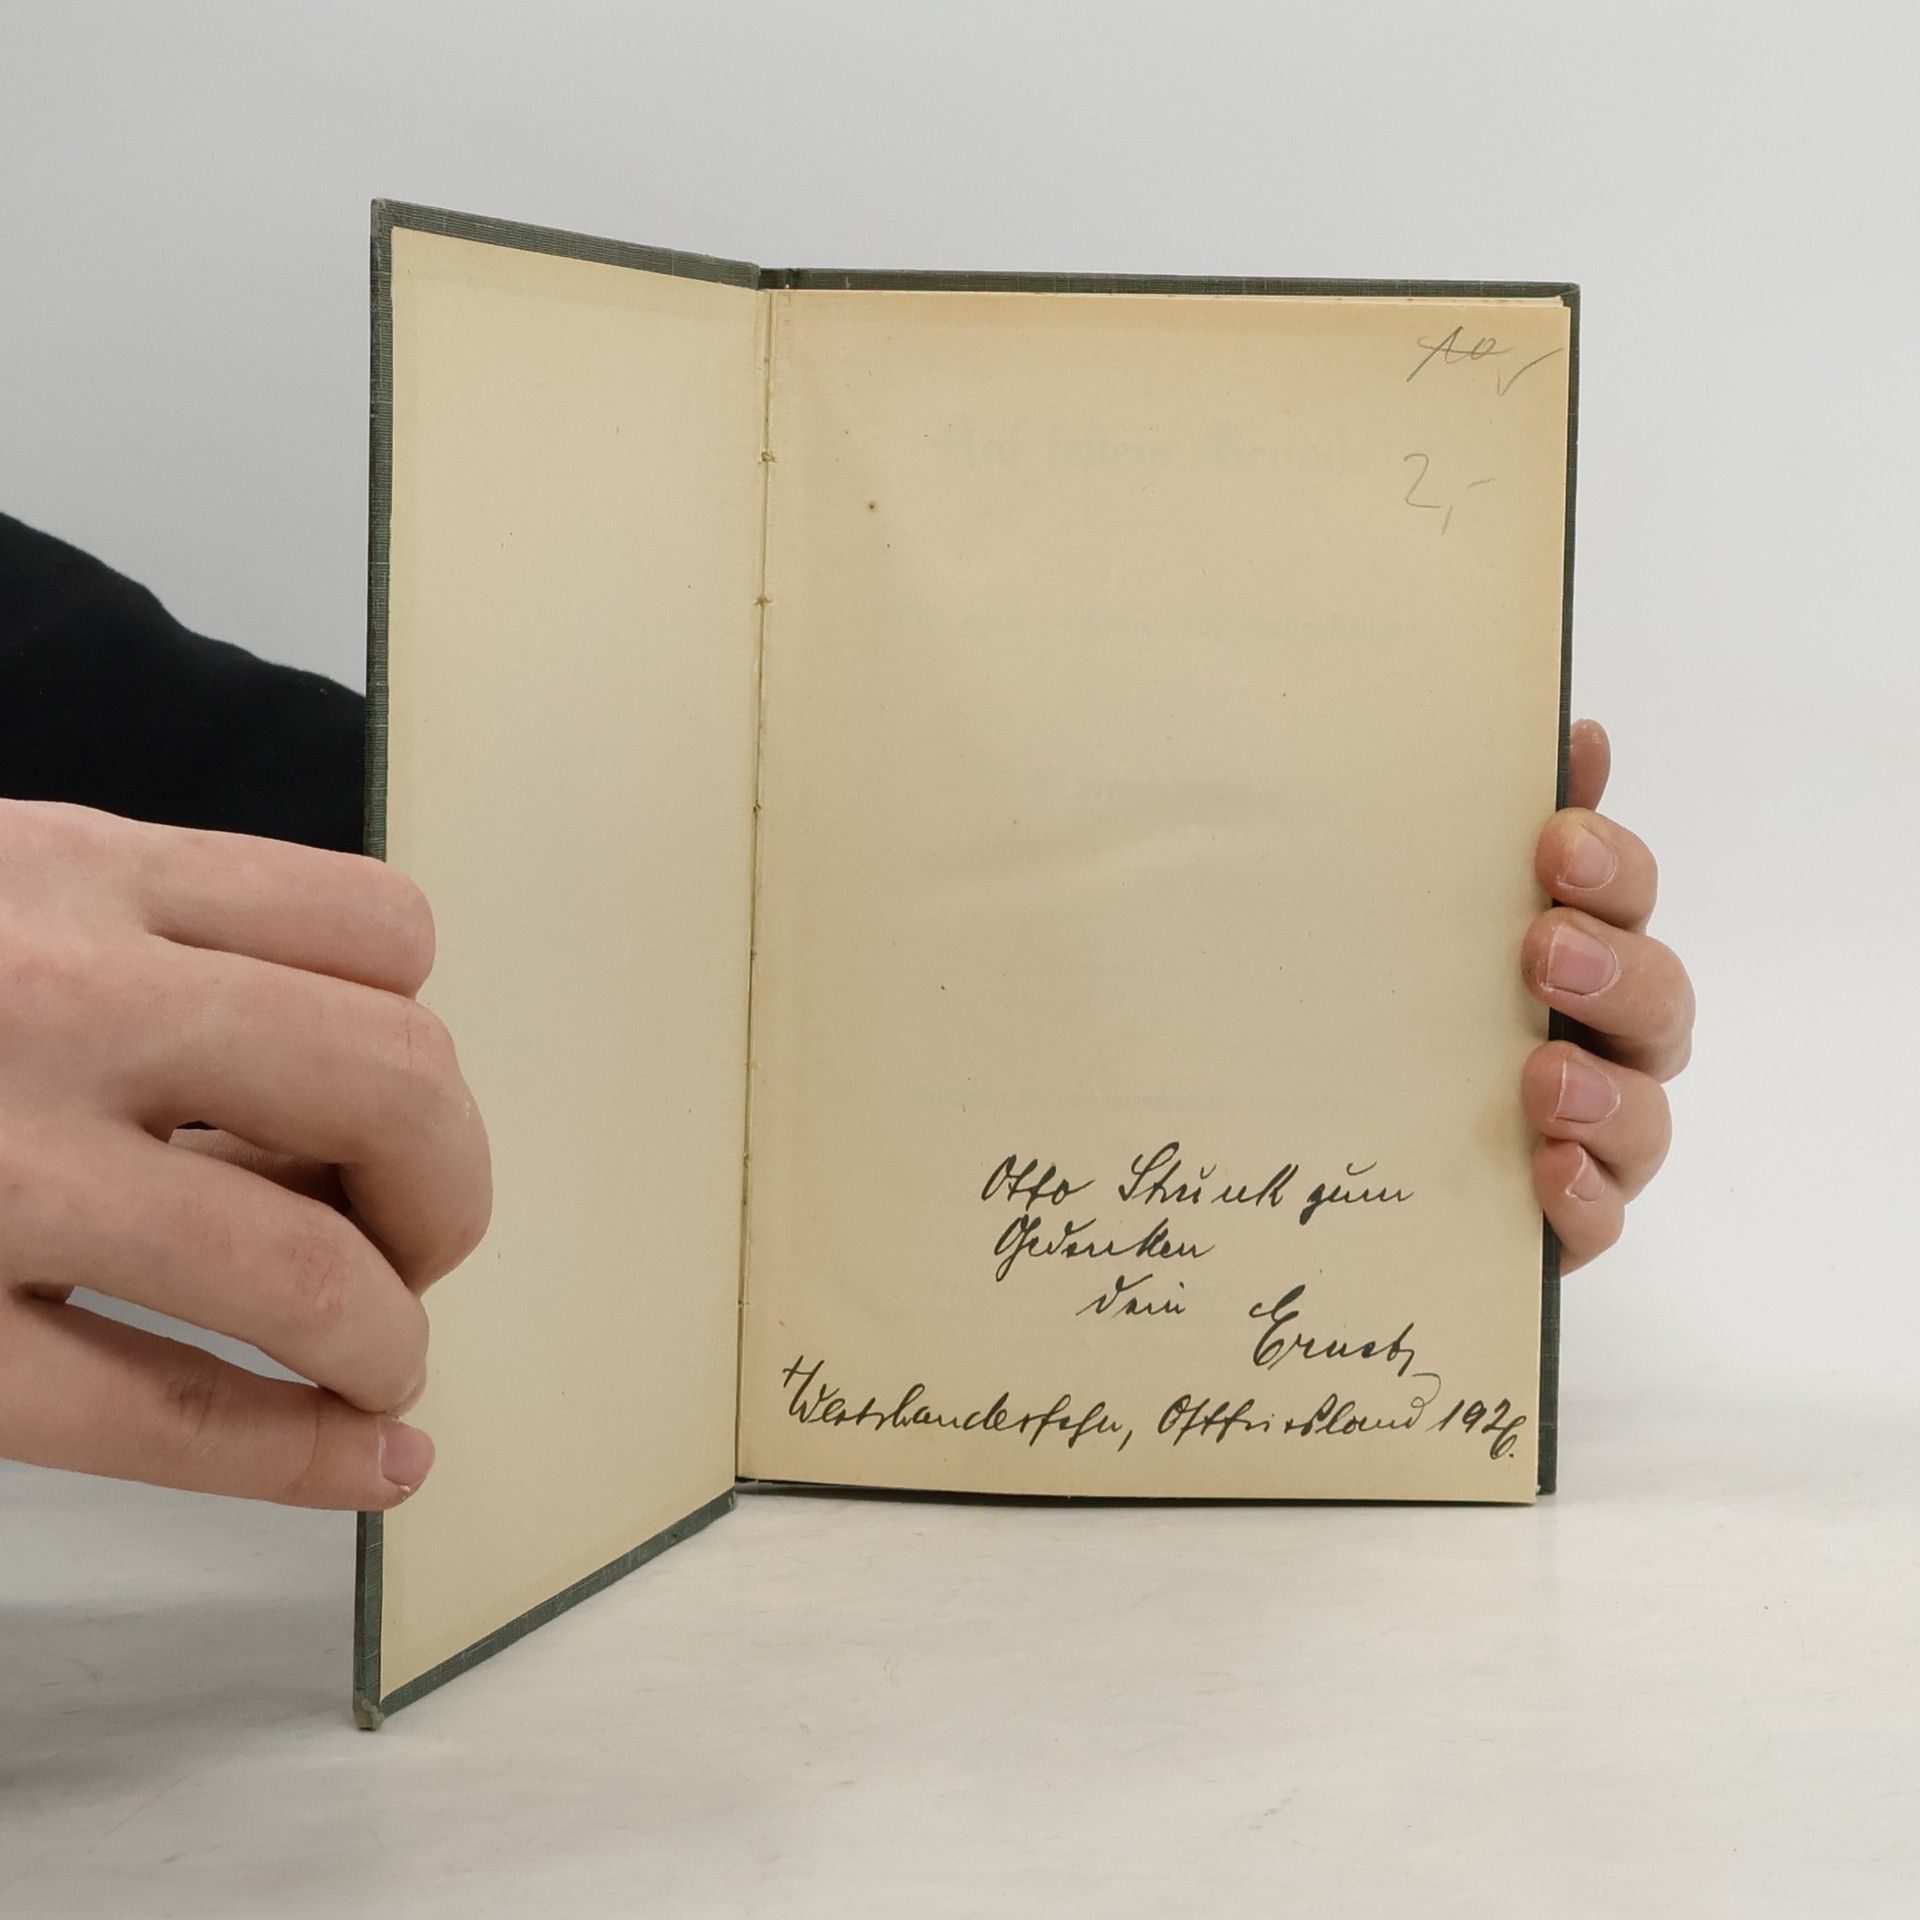 10,-
2,-
Otto Strunk zum
Gedenken
dein Ernst
Westrhauderfehn, Ostfriesland 1926.